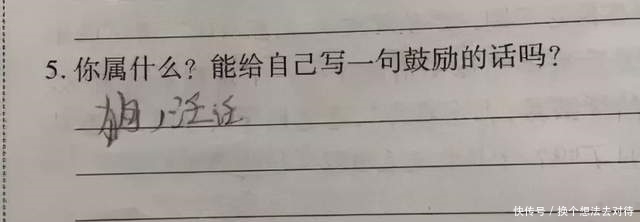 5. 你属什么？能给自己写一句鼓励的话吗？
快传号／换个想法去对待